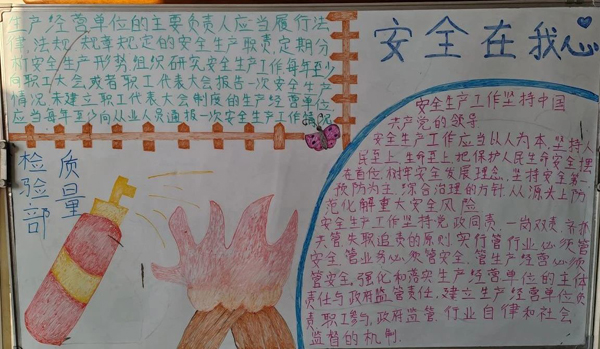 生产经营单位的主要负责人应当履行法
律,法规,规章规定的安全生产职责,定期分
析安全生产形势,组织研究安全生产工作每年至少
向职工大会或者职工代表大会报告一次安全生产
情况,未建立职工代表大会制度的生产经营单位
应当每年至少向从业人员通报一次安全生产工作情况
安全在我心
质量
检验部
安全生产工作坚持中国
共产党的领导
安全生产工作应当以人为本,坚持人
民至上,生命至上,把保护人民生命安全摆
在首位,树牢安全发展理念,坚持安全第一
预防为主,综合治理的方针,从源头上防
范化解重大安全风险
安全生产工作坚持党政同责,一岗双责,齐抓
共管失职追责的原则,实行管行业必须管
安全,管业务必须管安全,管生产经营必须
管安全,强化和落实生产经营单位的主体
责任与政府监管责任,建立生产经营单位负
责,职工参与,政府监管,行业自律和社会
监督的机制.